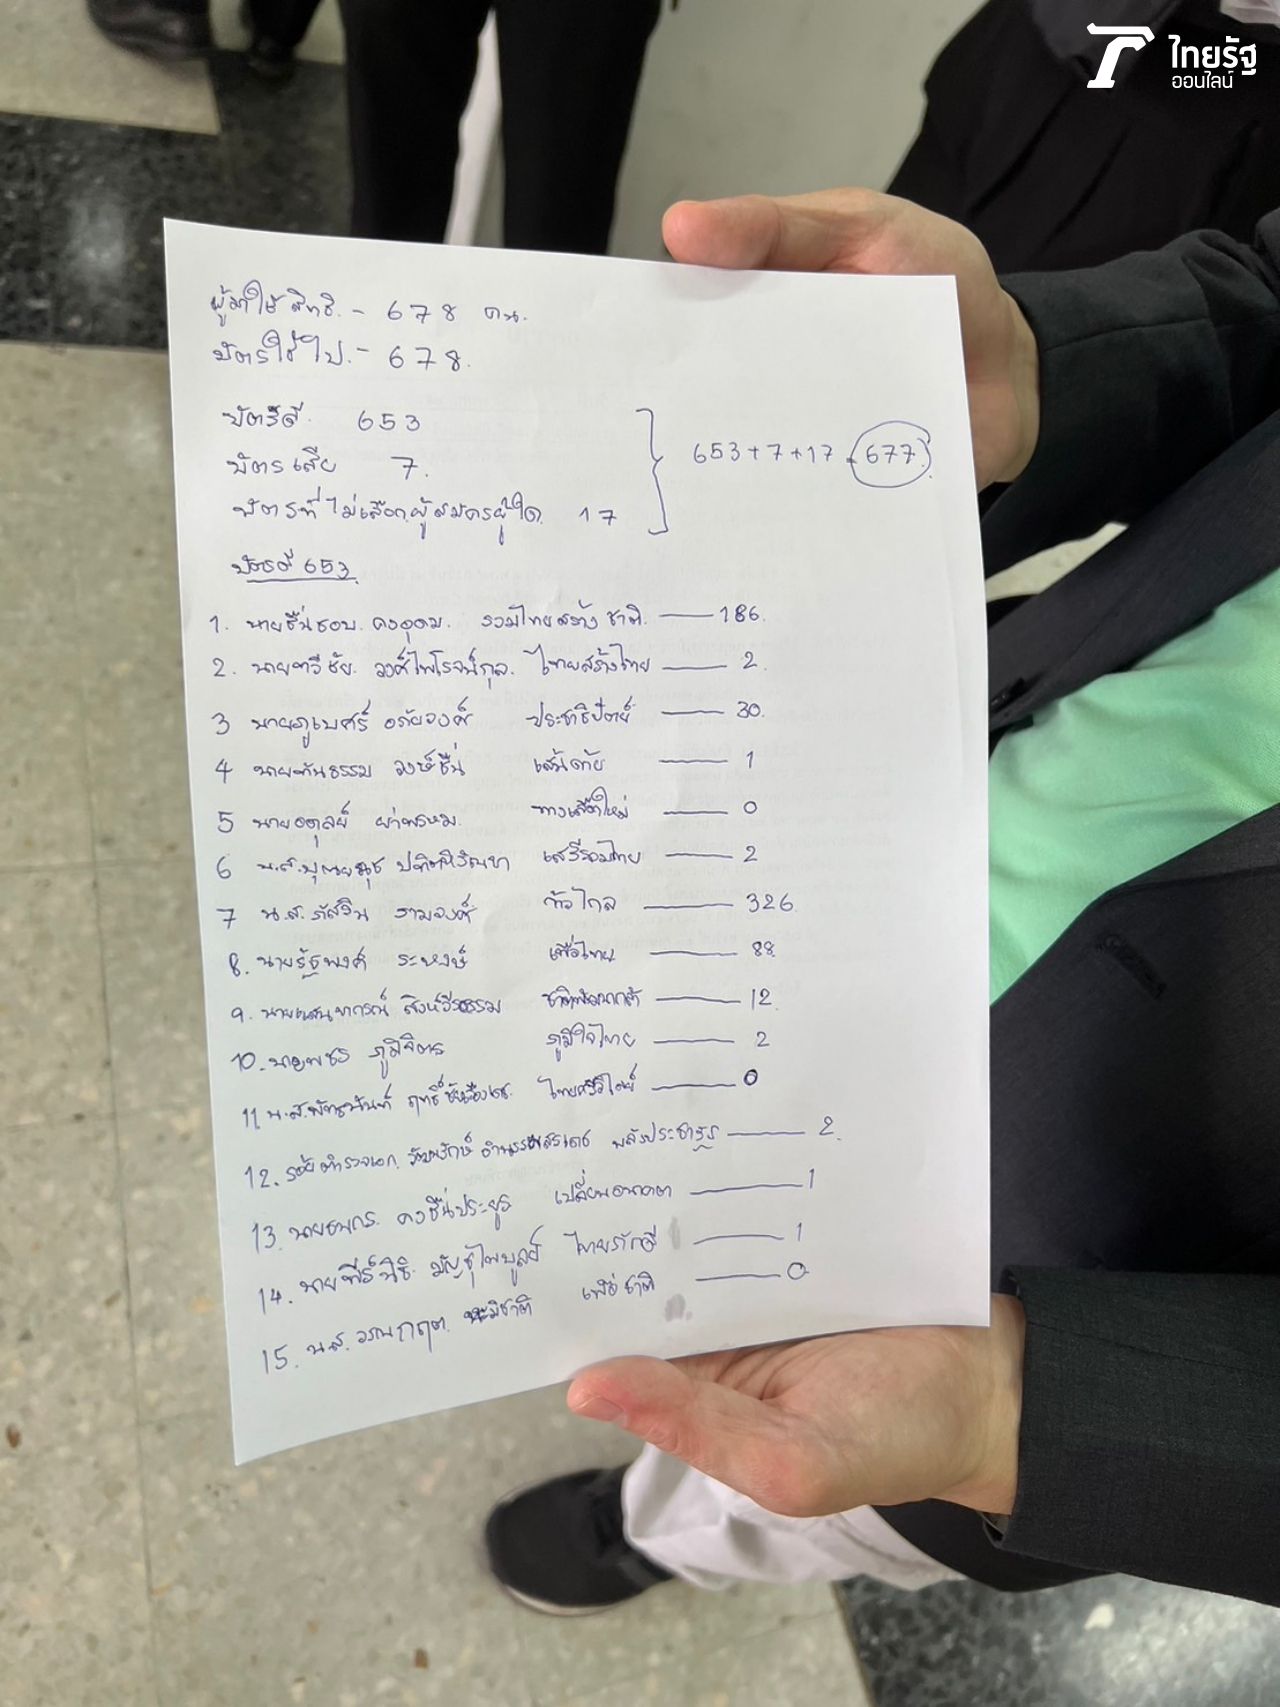 ไทยรัฐ
ออนไลน์
ผู้มาใช้สิทธิ - 678 คน.
บัตรใช้ไป. - 678.
บัตรดี 653
บัตรเสีย 7.
บัตรที่ไม่เลือกผู้สมัครผู้ใด 17
653+7+17 = 677
บัตรดี 653
1. นายชื่นชอบ คงอุดม. รวมไทยสร้างชาติ — 186.
2. นายทวีชัย วงศ์ไพโรจน์กุล. ไทยสร้างไทย — 2
3 นายภูเบศร์ อภัยวงศ์ ประชาธิปัตย์ — 30.
4 นายทันธรรม วงษ์ชื่น เส้นด้าย — 1
5 นายอตุลย์ ทางเลือกใหม่ — 0
6 น.ส. เสรีรวมไทย — 2
7 น.ส. ภัสริน รามวงศ์ ก้าวไกล — 326
8. นายรัฐพงศ์ ระหงษ์ เพื่อไทย — 88
9. สิงห์วีรธรรม ชาติพัฒนากล้า — 12
10. นายพชร ภูมิจิตร ภูมิใจไทย — 2
11 น.ส. — 0
12. ร้อยตำรวจเอก พลังประชารัฐ — 2.
13. นายธนกร. คงชื่นประยูร เปลี่ยนอนาคต — 1
14. ไทยภักดี — 1
15. น.ส. เพื่อชาติ — 0